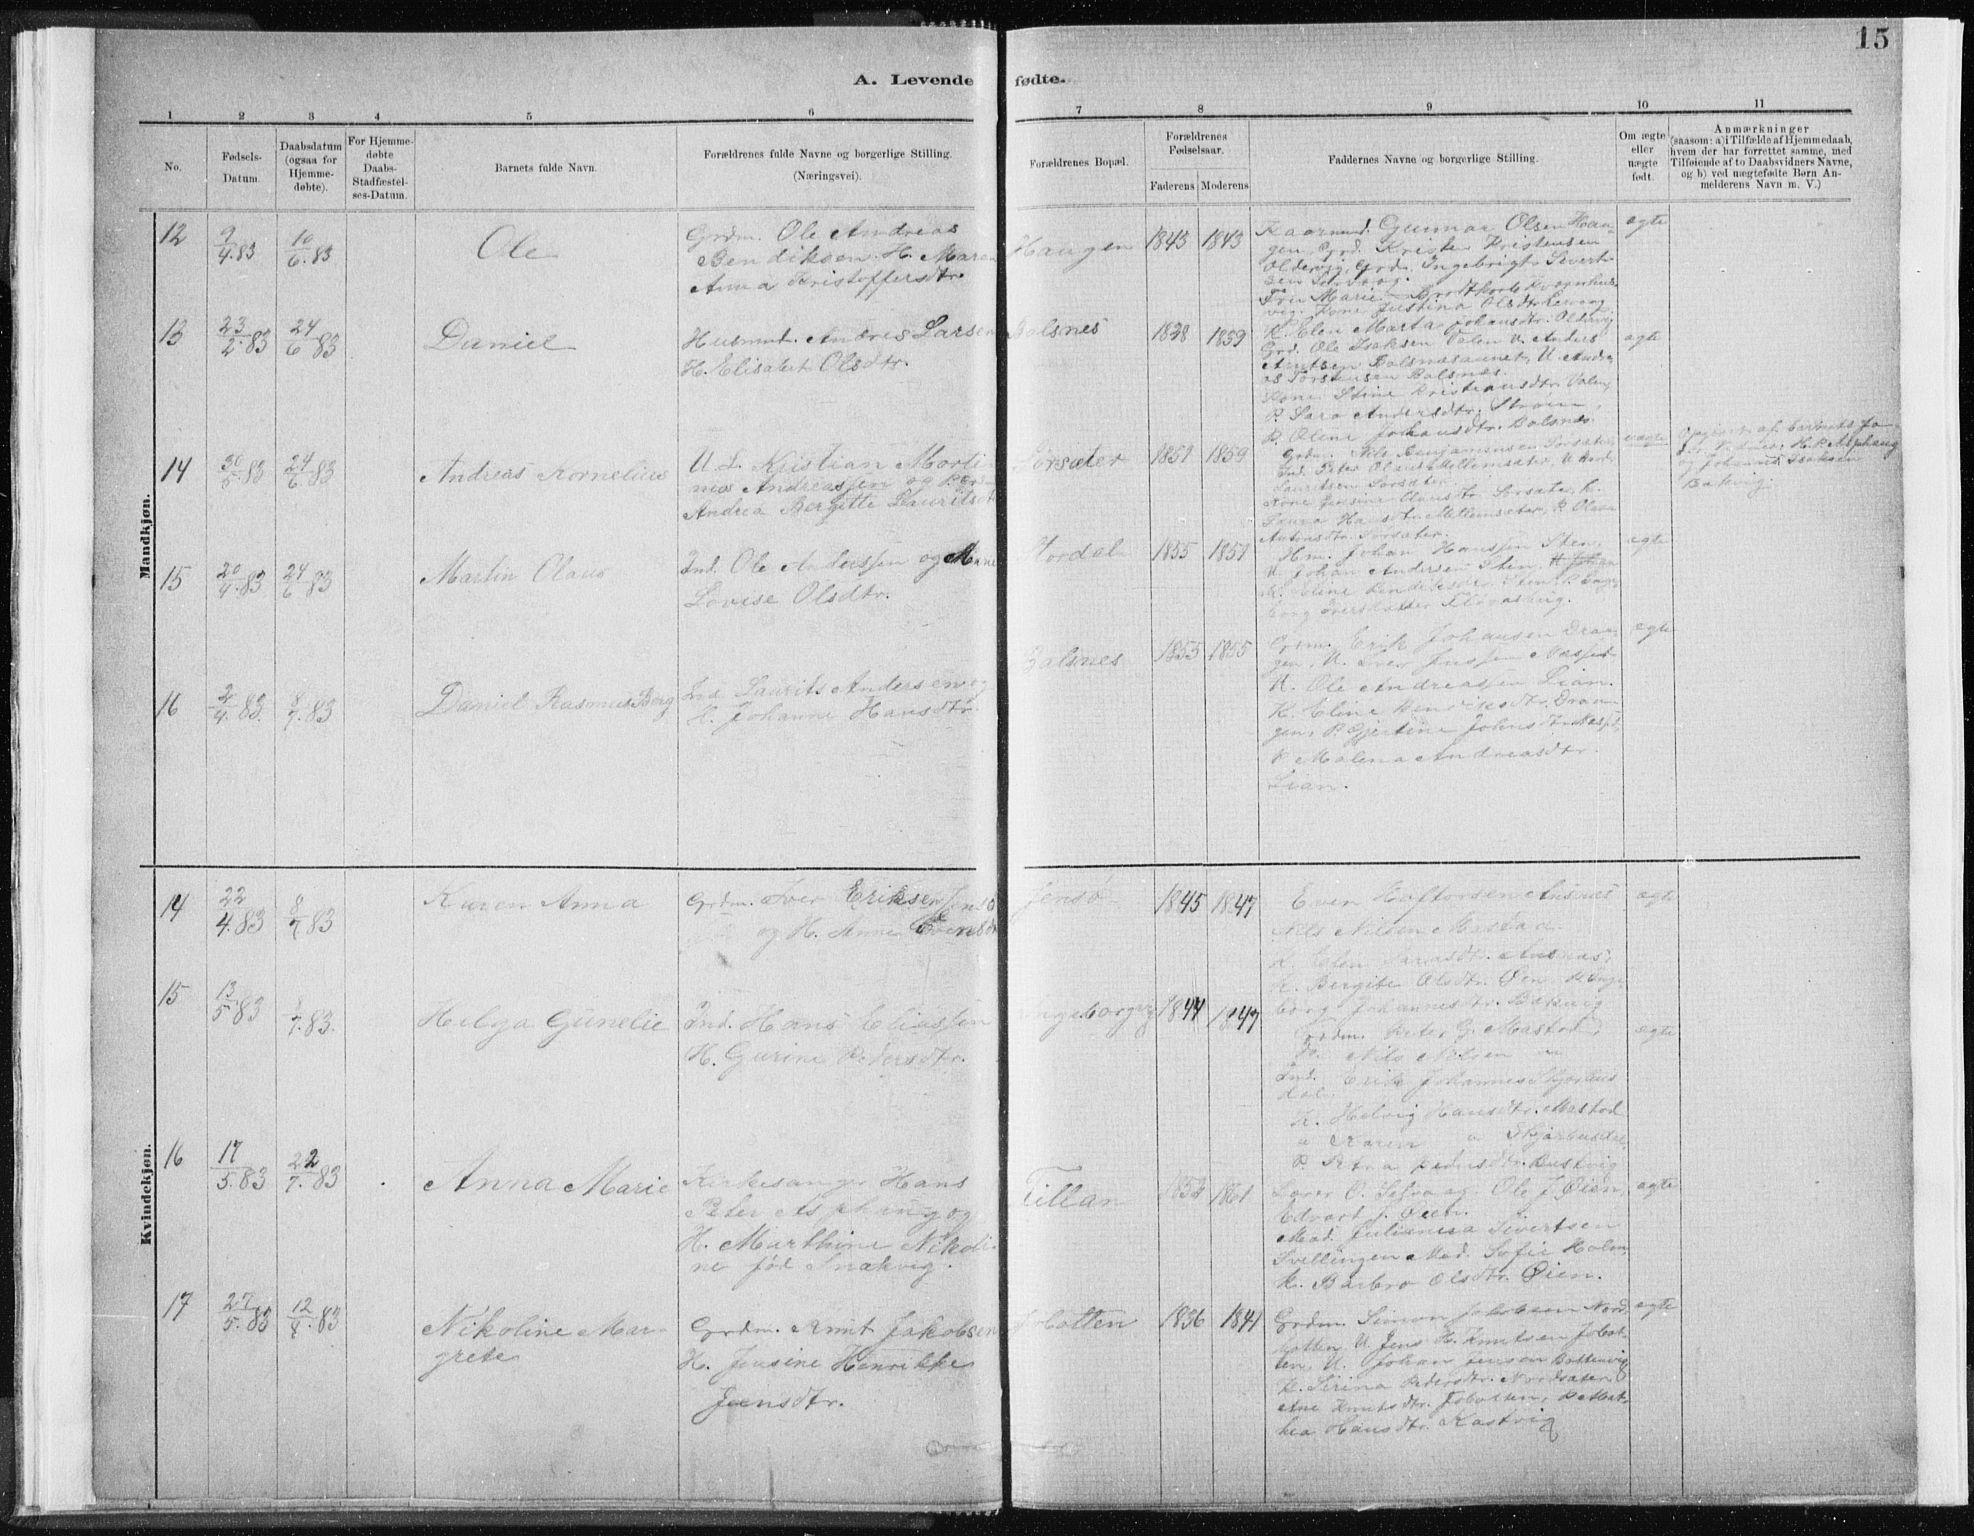 15
A. Levende fødte.
1 2 3 4 5 6 7 8 9 10 11
No.
Fødsels-
Datum.
Daabsdatum
(ogsaa for
Hjemme-
døbte).
For Hjemme-
døbte
Daabs-
Stadfæstel-
ses-Datum.
Barnets fulde Navn.
Forældrenes fulde Navne og borgerlige Stilling.
(Næringsvei).
Forældrenes Bopæl.
Forældrenes
Fødselsaar.
Faderens Moderens
Faddernes Navne og borgerlige Stilling.
Om ægte
eller
uægte
født.
Anmærkninger
(saasom: a) i Tilfælde af Hjemmedaab,
hvem der har forrettet samme, med
Tilføiende af to Daabsvidners Navne,
og b) ved uægtefødte Børn An-
melderens Navn m. V.)
Mandkjøn.
12 9/4.83 10/6.83 Ole
Grdm. Ole Andreas
Bendiksen. H. Maren
Anna Kristoffersdtr.
Haugen 1843 1843
Kaarmd. Gunnar Olsen Hau-
gen, Grd. Krister Kristensen
Oldervig, Grd. Ingebrigt Sivert-
sen
Fru Marie Brodtkorb
Kone Justina Olsdtr
K. Elen Marta Johansdtr. Oldervig
ægte
13 23/2.83 24/6.83 Daniel
Husmd. Andreas Larsen
H. Elisabet Olsdtr.
Balsnes 1838 1859
Grd. Ole Isaksen Valen U. Anders
Arntsen Balsnesaunet, U. Andre-
as Torstensen Balsnes.
Kone Stine Kristiansdtr. Valen,
P. Sara Andersdtr. Strøm,
P. Oline Johansdtr. Balsnes.
ægte
14 30/5.83 24/6.83 Andreas Kornelius
U. L. Kristian Marti-
nus Andreassen og P.
Andrea Bergitte Lauritsdtr
Sørsæter 1851 1859
Grdm. Nils Benjaminsen Sørsæter,
Ind. Peter Olaus Mellemsæter, U.
Lauritsen Sørsæter.
Kone Jensine Olausdtr. Sørsæter, K.
Laura Mellemsæter, P. Olava
Antonsdtr. Sørsæter.
uægte
Opgivet af Barnets Fa-
der. Vidner: H. P. Asphaug
og Johannes Isaksen
Bakvig.
15 20/4.83 24/6.83 Martin Olaus
Ind. Ole Anderssen og Marie
Lovise Olsdtr.
Stordal 1855 1851
Hm. Johan Hanssen Sten,
U. Johan Andersen Sten,
K. Eline Bendiksdtr. Sten, P. Inge-
borg Iversdatter
ægte
16 2/4.83 8/7.83 Daniel Rasmus Berg
Ind. Laurits Andersen og
H. Johanne Hansdtr.
Balsnes 1855 1855
Grdm. Erik Johansen Dran-
gen, U. Iver Jenssen
U. Ole Andreassen Lian.
K. Eline Henriksdtr. Dran-
gen, P. Gjertine Johnsdtr.
P. Malena Andreasdtr.
Lian.
ægte
Kvindekjøn.
14 22/4.83 8/7.83 Karen Anna
Grdm. Iver Eriksen Jensø
og H. Anne Evensdtr
Jensø 1845 1847
Even Haftorsen Ausnes
Nils Nilsen Mastad
K. Elen Ausnes,
K. Bergite Olsdtr. Øen P. Inge-
borg Johannesdtr. Bakvig
ægte
15 13/5.83 8/7.83. Helga Gunelie
Ind. Hans Eliassen
H. Gurine Pedersdtr.
1844 1847
Grdm. Peter G. Mastad,
Do Nils Nilsen "
Ind. Erik Johannes Skjørhus
dal.
K. Helvig Hansdtr. Mastad
" Karen "
P. Petra Pedersdtr. Bustvig
ægte
16 17/5.83 22/7.83 Anna Marie
Kirkesanger Hans
Peter Asphaug og
H. Marthine Nikoli-
ne fød Snekvig.
Tillan 1852 1861
Lærer O. Selvaag, Ole J. Øien,
Edvart J. Øien.
Mad. Julianna Sivertsen
Svellingen Mad. Sofie Holm,
K. Barbro Olsdtr. Øien.
ægte
17 27/5.83 12/8.83 Nikoline Mar-
grete
Grdm. Arnt Jakobsen
H. Jensine Henrikke
Jensdtr.
Jobotten 1836 1841
Grdm. Simon Jakobsen Nord
botten, U. Jens H. Knutsen Jobot-
ten, U. Johan Jensen Bottenvig
K. Sirina Pedersdtr. Nordsæter
Ane Knutsdtr. Jobotten, P. Mar-
hea Hansdtr. Kastvig
ægte